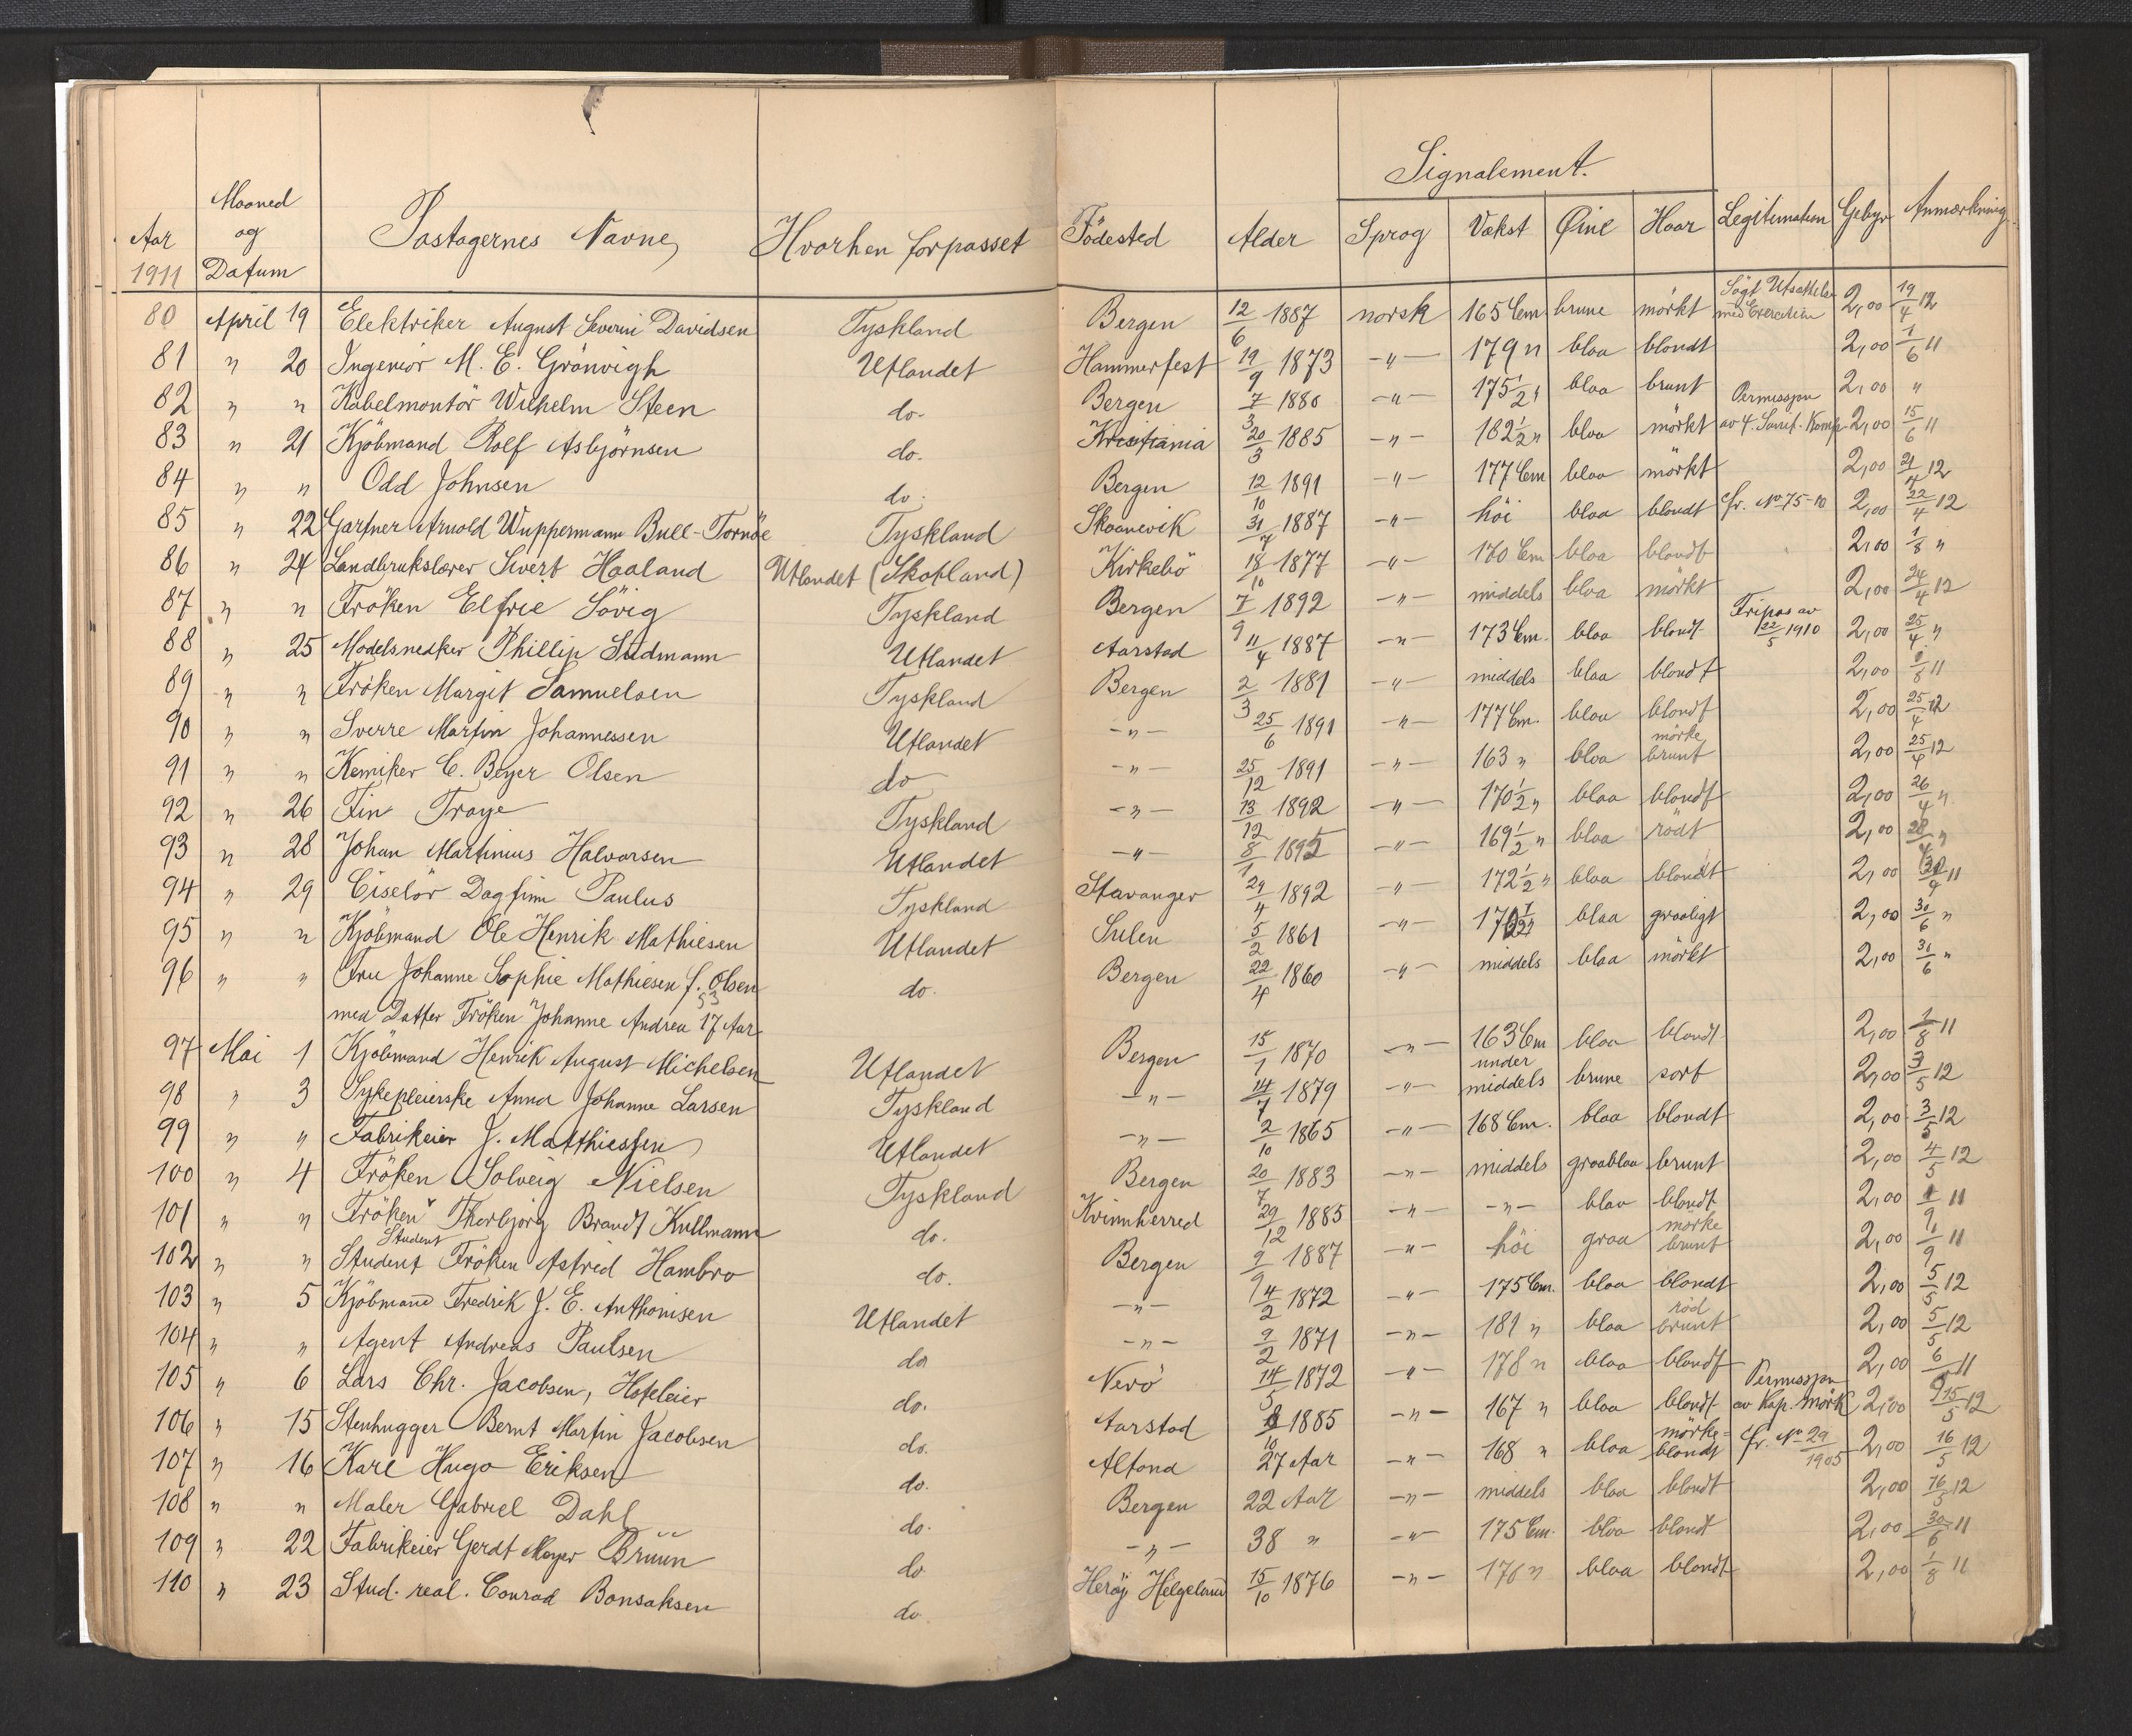 Signalement.
Aar 1911 Maaned og Datum Pastagernes Navne, Hvorhen forpasset Födested Alder Sprog Vækst Øine Haar Legitimation Gebyr Anmærkning.
80 April 19 Elektriker August Severin Davidsen Tyskland Bergen 12/6 1887 norsk 165 Cm brune mörkt Sögt Utsættelse med Exercitien 2,00 19/4 12
81 " 20 Ingeniör M. E. Grönvigh Utlandet Hammerfest 19/9 1873 -"- 179 " blaa blondt 2,00 1/6 11
82 " " Kabelmontör Wilhelm Steen do. Bergen 7/3 1880 -"- 175 1/2 " blaa brunt 2,00 "
83 " 21 Kjöbmand Rolf Asbjörnsen do. Kristiania 20/3 1885 -"- 182 1/2 " blaa mörkt Permisspn av 4. Sanit. Komp. 2,00 15/6 11
84 " " Odd Johnsen do. Bergen 12/10 1891 -"- 177 Cm blaa mörkt 2,00 21/4 12
85 " 22 Gartner Arnold Wuppermann Bull-Tornöe Tyskland Skaanevik 31/7 1887 -"- höi blaa blondt cfr. No 75-10 2,00 22/4 12
86 " 24 Landbrukslærer Sivert Haaland Utlandet (Skotland) Kirkebö 18/10 1877 -"- 170 Cm blaa blondt 2,00 1/8 "
87 " " Fröken Elfrie Sövig Tyskland Bergen 7/9 1892 -"- middels blaa mörkt 2,00 24/4 12
88 " 25 Modelsnedker Phillip Sudmann Utlandet Aarstad 11/4 1887 -"- 173 Cm. blaa blondt Fripas av 22/5 1910 2,00 25/4 "
89 " " Fröken Margit Samuelsen Tyskland Bergen 2/3 1881 -"- middels blaa blondt 2,00 1/8 11
90 " " Sverre Martin Johannessen Utlandet -"- 25/6 1891 -"- 177 Cm. blaa blondt 2,00 25/4 12
91 " " Kemiker C. Beyer Olsen do -"- 25/12 1891 -"- 163 " blaa mörke brunt 2,00 25/4 12
92 " 26 Fin Troye Tyskland -"- 13/12 1892 -"- 170 1/2 " blaa blondt 2,00 26/4 "
93 " 28 Johan Martinius Halvorsen Utlandet -"- 8/1 1892 -"- 169 1/2 " blaa rödt 2,00 28/4 "
94 " 29 Ciselör Dagfinn Paulus Tyskland Stavanger 29/4 1892 -"- 172 1/2 " blaa blondt 2,00 30/9 11
95 " " Kjöbmand Ole Henrik Mathiesen Utlandet Sulen 5/2 1861 -"- blaa graaligt 2,00 30/6 "
96 " " Fru Johanne Sophie Mathiesen f. Olsen do. Bergen 22/4 1860 -"- middels blaa mörkt 2,00 30/6 "
med Datter Fröken Johanne Andrea 17 Aar
97 Mai 1 Kjöbmand Henrik August Michelsen Utlandet Bergen 15/1 1870 -"- 163 Cm blaa blondt 2,00 1/8 11
98 " 3 Sykepleierske Anna Johanne Larsen Tyskland -"- 14/7 1879 -"- under middels brune sort 2,00 3/5 12
99 " " Fabrikeier J. Matthiessen Utlandet -"- 2/10 1865 -"- 168 Cm. blaa blondt 2,00 3/5 12
100 " 4 Fröken Solveig Nielsen Tyskland Bergen 20/7 1883 -"- middels graablaa brunt 2,00 4/5 12
101 " " Fröken Thorbjörg Brandt Kullmann do. Kvinnherred 29/12 1885 -"- -"- blaa blondt 2,00 1/9 11
102 " " Student Student Fröken Astrid Hambro do. Bergen 9/9 1887 -"- höi graa mörke brunt 2,00 1/9 11
103 " 5 Kjöbmand Fredrik J. E. Anthonisen Utlandet -"- 4/2 1872 -"- 175 Cm. blaa blondt 2,00 5/5 12
104 " " Agent Andreas Paulsen do -"- 9/2 1871 -"- 181 " blaa röd brunt 2,00 5/5 12
105 " 6 Lars Chr. Jacobsen, Hoteleier do. Nerö 14/5 1872 -"- 178 " blaa blondt 2,00 6/9 11
106 " 15 Stenhugger Bernt Martin Jacobsen do. Aarstad 8/10 1885 -"- 167 " blaa blondt Permisspn av Kap. Mörk 2,00 15/5 12
107 " 16 Karl Hugo Eriksen do. Altona 27 Aar -"- 168 " blaa mörke-blondt cfr. No 29/1905 2,00 16/5 12
108 " " Maler Gabriel Dahl do. Bergen 22 Aar -"- middels blaa blondt 2,00 16/5 12
109 " 22 Fabrikeier Gerdt Meyer Brüün do -"- 38 " -"- 175 Cm. blaa blondt 2,00 30/6 11
110 " 23 Stud. real. Conrad Bonsaksen do. Heröy Helgeland 15/10 1876 -"- 176 " blaa blondt 2,00 1/8 11